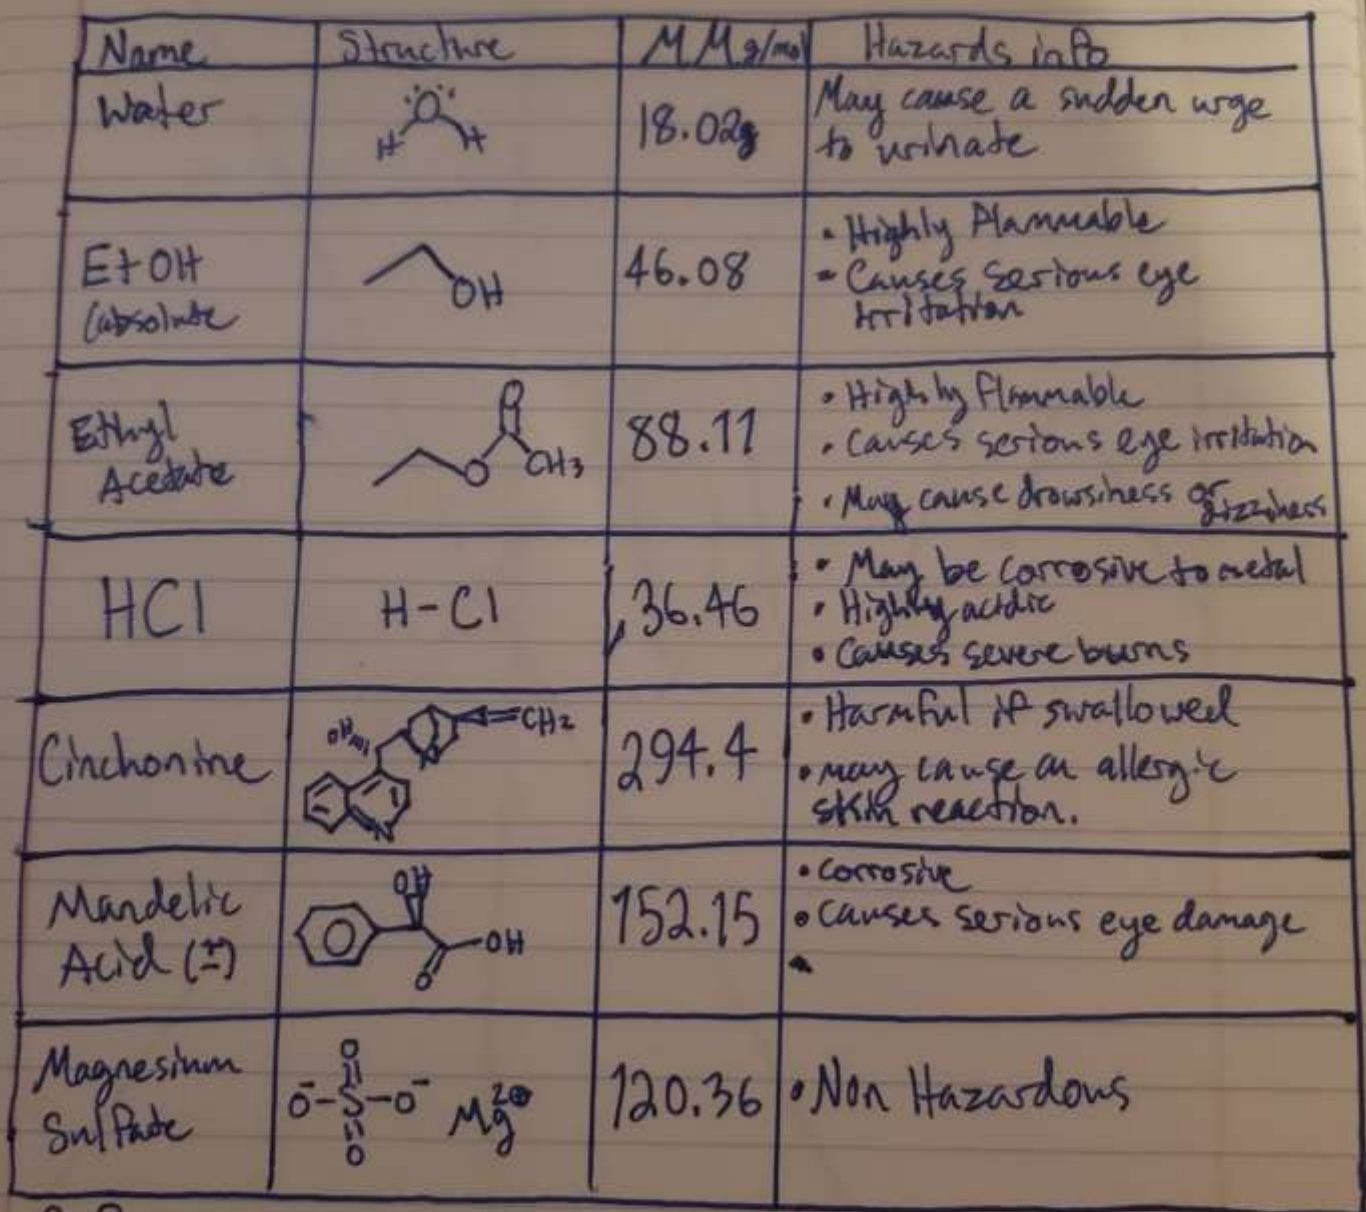 Name Structure MM g/mol Hazards info
Water O H H 18.02g May cause a sudden urge
to urinate
EtOH OH 46.08 • Highly Flammable
(absolute • Causes serious eye
irritation
Ethyl O O CH3 88.11 • Highly Flammable
Acetate • causes serious eye irritation
• May cause drowsiness or dizziness
HCl H-Cl 36.46 • May be corrosive to metal
• Highly acidic
• Causes severe burns
Cinchonine OH H =CH2 N N 294.4 • Harmful if swallowed
• may cause an allergic
skin reaction.
Mandelic OH OH O 152.15 • Corrosive
Acid (±) • Causes serious eye damage
Magnesium O O⁻-S-O⁻ O Mg²⊕ 120.36 • Non Hazardous
Sulfate